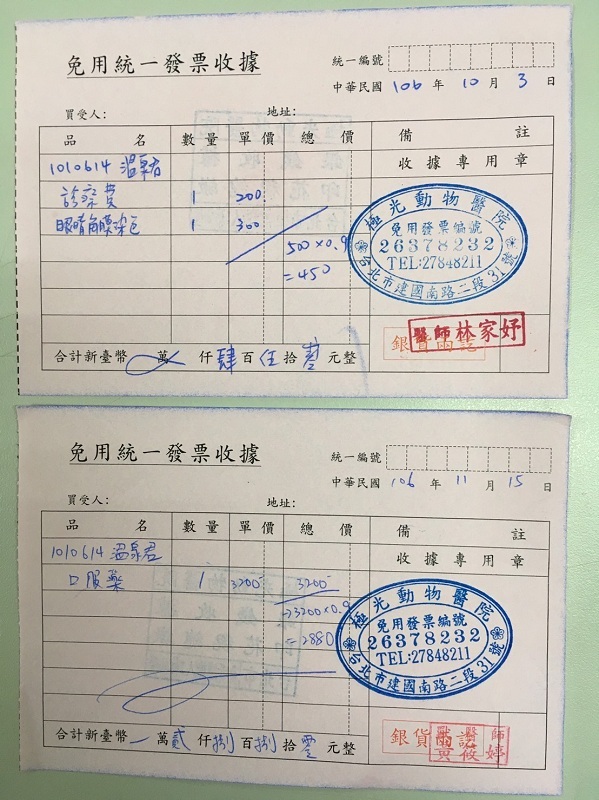 免用統一發票收據
統一編號
中華民國 106 年 10 月 3 日
買受人: 地址:
品名 數量 單價 總價 備註
1010614 溫泉君 收據專用章
診察費 1 200
眼睛角膜染色 1 300
500×0.9
=450
極光動物醫院
免用發票編號
26378232
TEL:27848211
台北市建國南路二段31號
醫師林家妤
銀貨兩訖
合計新臺幣 萬 仟 肆 百 伍 拾 零 元整
免用統一發票收據
統一編號
中華民國 106 年 11 月 15 日
買受人: 地址:
品名 數量 單價 總價 備註
1010614 溫泉君 收據專用章
口服藥 1 3200 3200
3200×0.9
=2880
極光動物醫院
免用發票編號
26378232
TEL:27848211
台北市建國南路二段31號
銀貨兩訖
合計新臺幣 萬 貳 仟 捌 百 捌 拾 零 元整